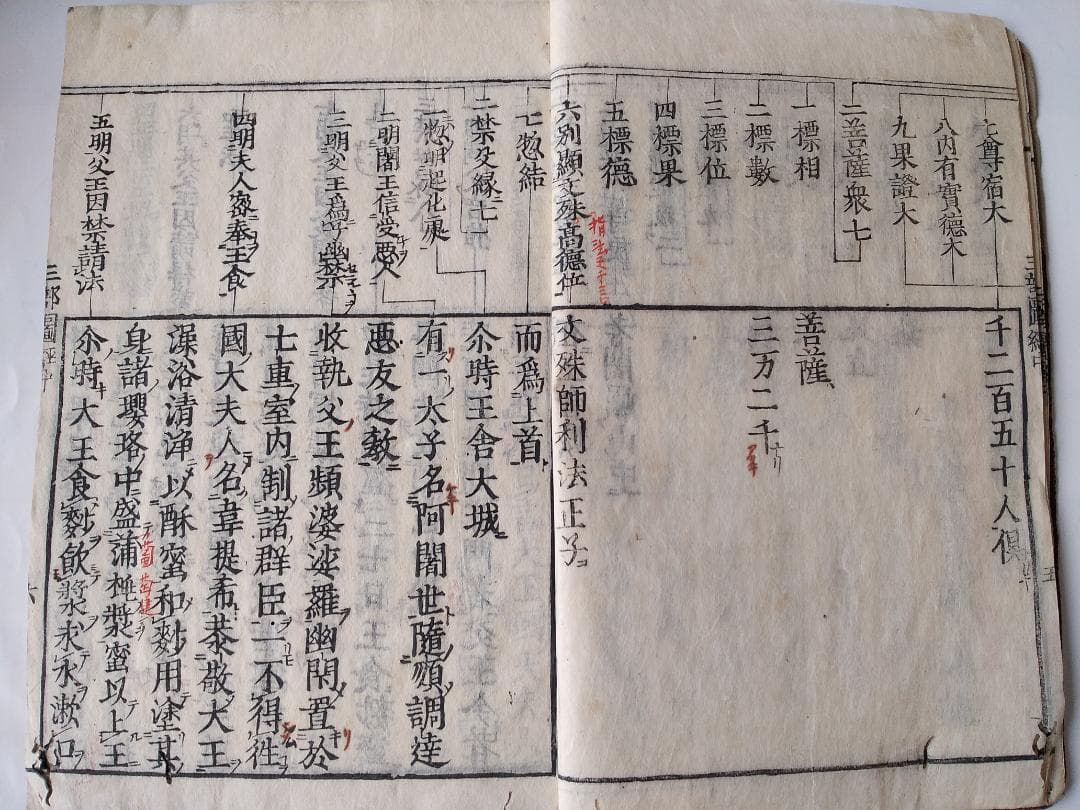 七尊宿大
八內有實德大
九果證大
二菩薩衆七
一標相
二標數
三標位
四標果
五標德
六別顯文殊高德位
七惣結
二禁父緣七
一惣明起化處
二明闍王信受惡人
三明父王爲子幽禁
四明夫人密奉王食
五明父王因禁請法
千二百五十人俱
菩薩
三万二千
文殊師利法王子
而爲上首
尒時王舍大城
有一太子名阿闍世隨順調達
惡友之教
收執父王頻婆娑羅幽閇置於
七重室內制諸群臣一不得徃
國大夫人名韋提希恭敬大王
澡浴清浄以酥蜜和麨用塗其
身諸瓔珞中盛蒲桃漿蜜以上王
尒時大王食麨飲漿求水漱口
六